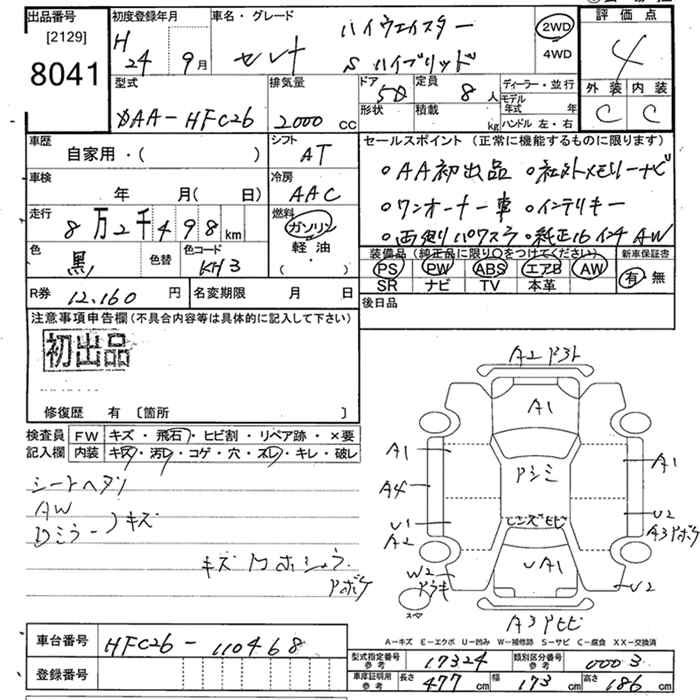 出品番号 初度登録年月 車名・グレード 評価点
[2129] H 24 9月 セレナ ハイウェイスター 2WD 4
8041 S ハイブリッド 4WD
型式 排気量 ドア 定員 ディーラー・並行 外装 内装
DAA-HFC26 2000cc 5D 8人 モデル年式 年 C C
形状 積載 kg ハンドル 左・右
車歴 シフト セールスポイント (正常に機能するものに限ります)
自家用・( ) AT ○AA初出品 ○社外メモリーナビ
車検 冷房
年 月(日) AAC ○ワンオーナー車 ○インテリキー
走行 燃料
8万2千498km ガソリン ○両側パワスラ ○純正16インチAW
色 色替 色コード 軽油 装備品 (純正品に限り○をつけてください) 新車保証書
黒 KH3 ・( ) PS PW ABS エアB AW 有・無
SR ナビ TV 本革
R券 12,160円 名変期限 月 日 後日品
注意事項申告欄 (不具合内容等は具体的に記入して下さい)
初出品
修復歴 有 〔箇所 〕
検査員 FW キズ・飛石・ヒビ割・リペア跡・×要
記入欄 内装 キズ・汚レ・コゲ・穴・スレ・キレ・破レ
シートヘタリ
AW
Dミラー キズ
キズ 凹 ホシュウ
Pボケ
A2 Pヨレ
A1
A1 A1
Pシミ
A4
U1 レンズヒビ U2
A2 A3 Pボケ
W2 UA1 U2
スペア
A3 Pヒビ
A-キズ E-エクボ U-凹み W-補修跡 S-サビ C-腐食 XX-交換済
車台番号 HFC26-110468
型式指定番号 参考 17324 類別区分番号 参考 0003
登録番号
車庫証明用 参考 長さ 477cm 幅 173cm 高さ 186cm